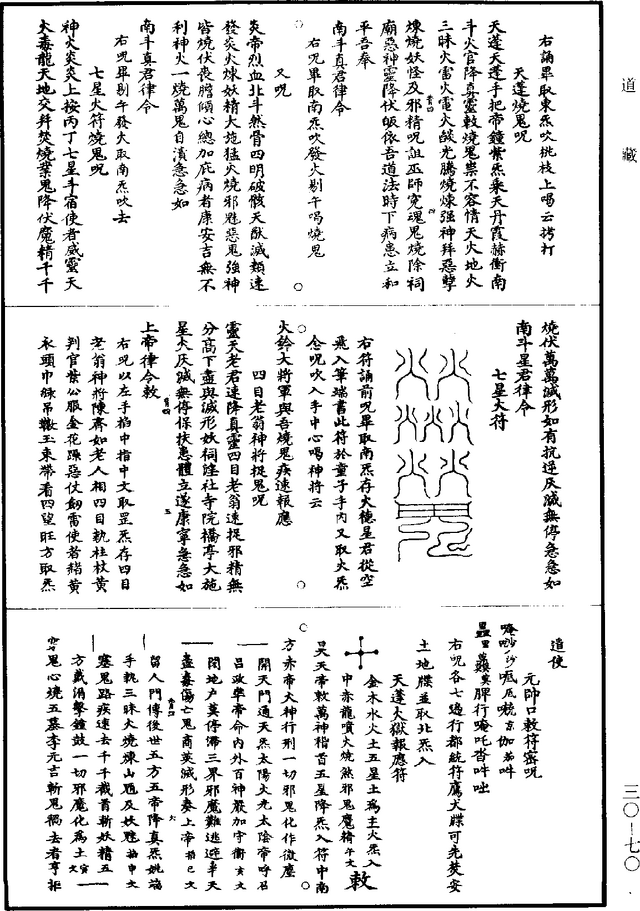 道藏
右誦畢取東炁吹桃枝上喝云拷打
天蓬燒鬼呪
天蓬天蓬手把帝鐘紫炁乘天丹霞赫衝南
斗火官降真靈敕燒鬼祟不容情天火地火
三昧火雷火電火燄光騰燒煉強神并惡孽
煉燒妖怪及邪精呪詛巫師冤魂鬼燒除祠
廟惡神靈降伏皈依吾道法時下病患立和
平吾奉
南斗真君律令
右呪畢取南炁吹發火剔午喝燒鬼
又呪
炎帝烈血北斗燃骨四明破骸天猷滅類速
發炎火煉妖精大施猛火燒邪魅惡鬼強神
皆燒伏喪膽傾心總加庇病者康安吉無不
利神火一燒萬鬼自潰急急如
南斗真君律令
右呪畢剔午發火取南炁吹去
七星火符燒鬼呪
神火炎炎上按丙丁七星斗宿使者威靈天
火毒龍天地交并焚燒業鬼降伏魔精千千
燒伏萬萬滅形如有抗逆灰滅無停急急如
南斗星君律令
七星火符
右符誦前呪畢取南炁存火德星君從空
飛入筆端書此符於童子手內又取火炁
念呪吹入手中心喝神將云
火鈴大將軍與吾燒鬼疾速報應
四目老翁神將捉鬼呪
靈天老君速降真靈四目老翁速捉邪精無
分高下盡與滅形妖祠陰社寺院橋亭大施
星火灰滅無停保扶患體立遂康寧急急如
上帝律令敕
右呪以左手掐中指中文取罡炁存四目
老翁神將陳齊如老人相四目執柱杖黃
判官紫公服金花躁惡仗劒雷使者緒黃
衣頭巾𢂿吊墩玉束帶看四望旺方取炁
遣使
元帥口敕符密呪
右呪各七遍行都統符鷹犬牒可先焚安
土地牒並取北炁入
天蓬火獄報應符
金木水火土五星土為主火炁入
中赤龍噴火燒煞邪鬼魔精午文 敕
昊天帝敕萬神稽首五星降炁入符中南
方赤帝火神行刑一切邪鬼化作微塵
開天門通天炁太陽火光太陰帝呼召
呂政舉帝命內外百神嚴加守衛亥文
閉地戶莫停滯三界邪魔難逃避奉天
盡臺傷亡鬼商莫滅形奏上帝指巳文
留人門傳後世五方五帝降真炁姚端
手執三昧火燒煉山魈及妖魅指申文
塞鬼路疾速去千千截首斬妖精五
方藏消擊鍾鼓一切邪魔化為土寅文
穿鬼心燒五墓李元吉斬鬼禍去者亨拒
三〇—七〇